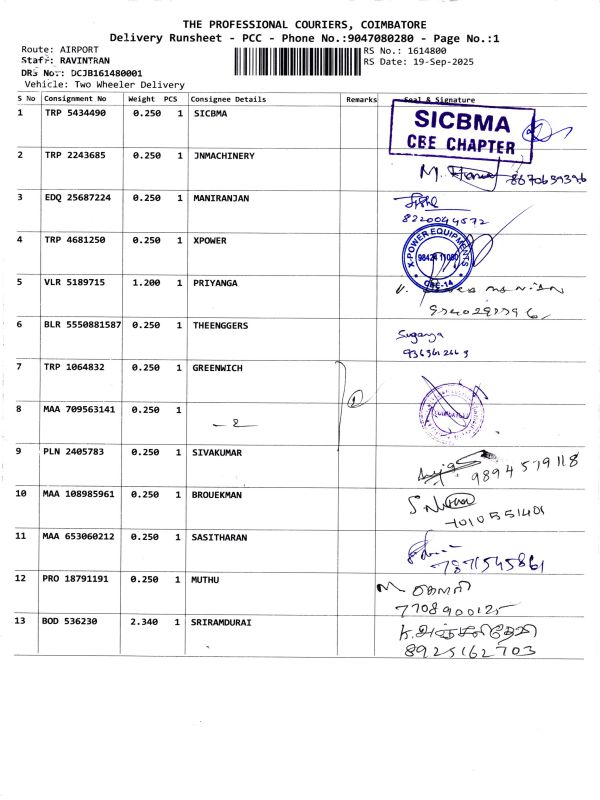 THE PROFESSIONAL COURIERS, COIMBATORE
Delivery Runsheet - PCC - Phone No.:9047080280 - Page No.:1
Route: AIRPORT RS No.: 1614800
Staff: RAVINTRAN RS Date: 19-Sep-2025
DRS No.: DCJB161480001
Vehicle: Two Wheeler Delivery
S No Consignment No Weight PCS Consignee Details Remarks Seal & Signature
1 TRP 5434490 0.250 1 SICBMA
SICBMA
CBE CHAPTER
2 TRP 2243685 0.250 1 JNMACHINERY
8870659396
3 EDQ 25687224 0.250 1 MANIRANJAN
8220044572
4 TRP 4681250 0.250 1 XPOWER
X-POWER EQUIPMENTS
98424 11080
CBE-14
5 VLR 5189715 1.200 1 PRIYANGA
6 BLR 5550881587 0.250 1 THEENGGERS
Suganya
9363612663
7 TRP 1064832 0.250 1 GREENWICH
8 MAA 709563141 0.250 1
COIMBATORE
9 PLN 2405783 0.250 1 SIVAKUMAR
9894579118
10 MAA 108985961 0.250 1 BROUEKMAN
7010551401
11 MAA 653060212 0.250 1 SASITHARAN
7871545861
12 PRO 18791191 0.250 1 MUTHU
7708900125
13 BOD 536230 2.340 1 SRIRAMDURAI
8925162703